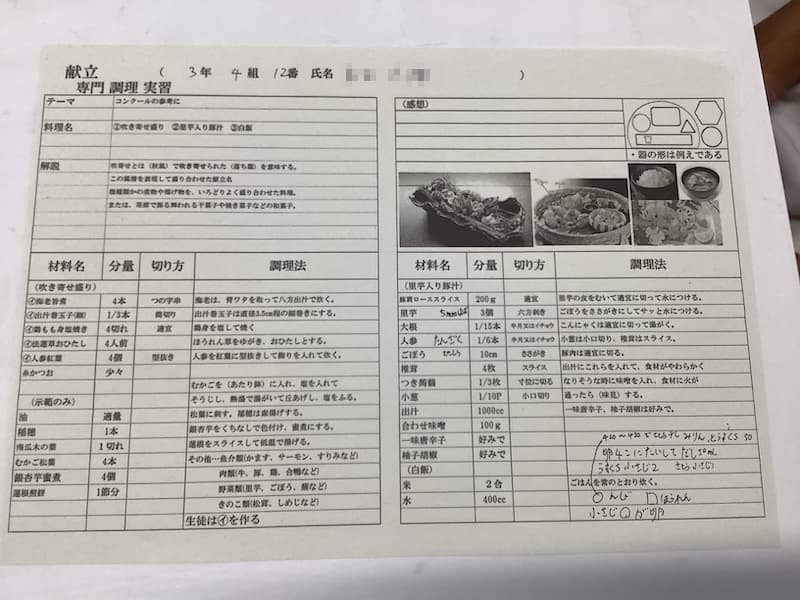 献立 ( 3年 4組 12番 氏名 )
専門 調理 実習
テーマ コンクールの参考に
料理名 ①吹き寄せ盛り ②里芋入り豚汁 ③白飯
解説 吹寄せとは(秋風)で吹き寄せられた(落ち葉)を意味する。
この風情を表現して盛り合わせた献立名
種種類かの煮物や揚げ物を、いろどりよく盛り合わせた料理。
または、茶席で振る舞われる干菓子や焼き菓子などの和菓子。
材料名 分量 切り方 調理法
(吹き寄せ盛り)
㋑海老旨煮 4本 つの字串 海老は、背ワタを取って八方出汁で炊く。
㋑出汁巻玉子(細) 1/3本 筒切り 出汁巻玉子は直径2.5cm程の細巻きにする。
㋑鶏もも身塩焼き 4切れ 適宜 鶏身を塩して焼く
㋑法蓮草おひたし 4人前 ほうれん草をゆがき、おひたしとする。
㋑人参紅葉 4個 型抜き 人参を紅葉に型抜きして飾りを入れて炊く。
糸かつお 少々
むかごを(あたり鉢)に入れ、塩を入れて
(示範のみ) そうじし、熱湯で湯がいて丘あげし、塩をふる。
油 適量 松葉に刺す。稲穂は素揚げする。
稲穂 1本 銀杏芋をくちなしで色付け、蜜煮にする。
南瓜木の葉 1切れ 蓮根をスライスして低温で揚げる。
むかご松葉 4本 その他…魚介類(かます、サーモン、すりみなど)
銀杏芋蜜煮 4個 肉類(牛、豚、鶏、合鴨など)
蓮根煎餅 1節分 野菜類(里芋、ごぼう、蕪など)
きのこ類(松茸、しめじなど)
生徒は㋑を作る
(感想)
・器の形は例えである
材料名 分量 切り方 調理法
(里芋入り豚汁)
豚肩ローススライス 200g 適宜 里芋の皮をむいて適宜に切って水につける。
里芋 5mmはば 3個 六方剥き ごぼうをささがきにしてサッと水につける。
大根 1/15本 半月又はイチョウ こんにゃくは適宜に切って湯がく。
人参 たんざく 1/6本 半月又はイチョウ 小葱は小口切り、椎茸はスライス。
ごぼう 10cm ささがき 豚肉は適宜に切る。
椎茸 4枚 スライス 出汁にこれらを入れて、食材がやわらかく
つき蒟蒻 1/3枚 寸位に切る なりそうな時に味噌を入れ、食材に火が
小葱 1/10P 小口切り 通ったら(味見)する。
出汁 1000cc 一味唐辛子、柚子胡椒は好みで。
合わせ味噌 100g
一味唐辛子 好みで
柚子胡椒 好みで 卵4こにたいしてだし50mL
(白飯) うすくち小さじ2
米 2合 ごはんを常のとおり炊く。
水 400cc